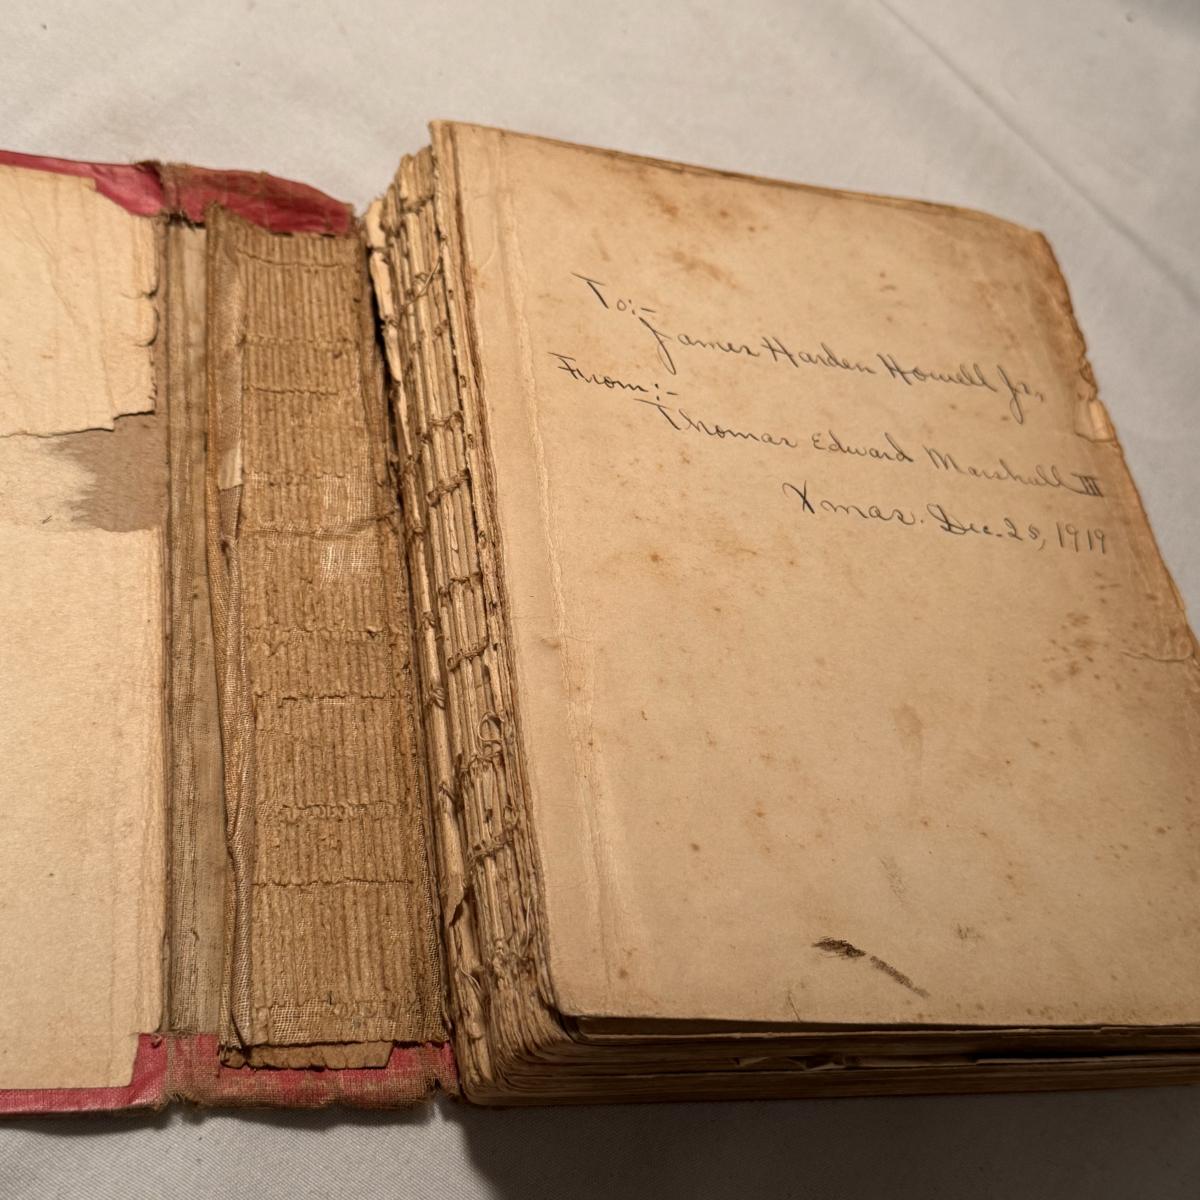 To:-
James Harden Howell Jr.,
From:-
Thomas Edward Marshall III
Xmas. Dec. 25, 1919